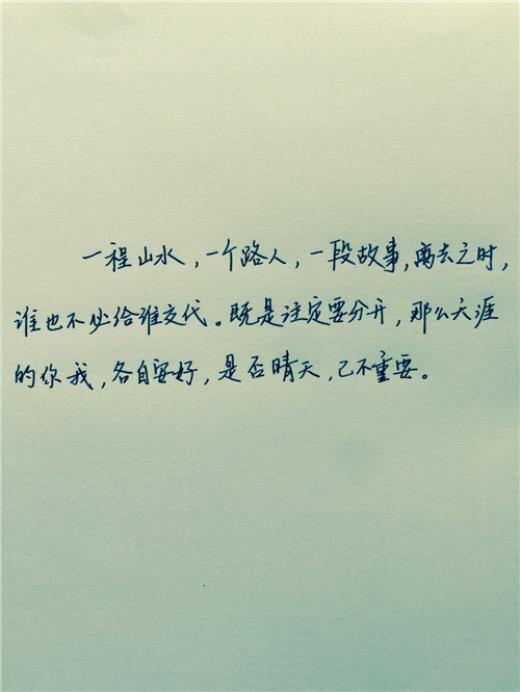 一程山水,一个路人,一段故事,离去之时,
谁也不必给谁交代。既是注定要分开,那么天涯
的你我,各自安好,是否晴天,已不重要。